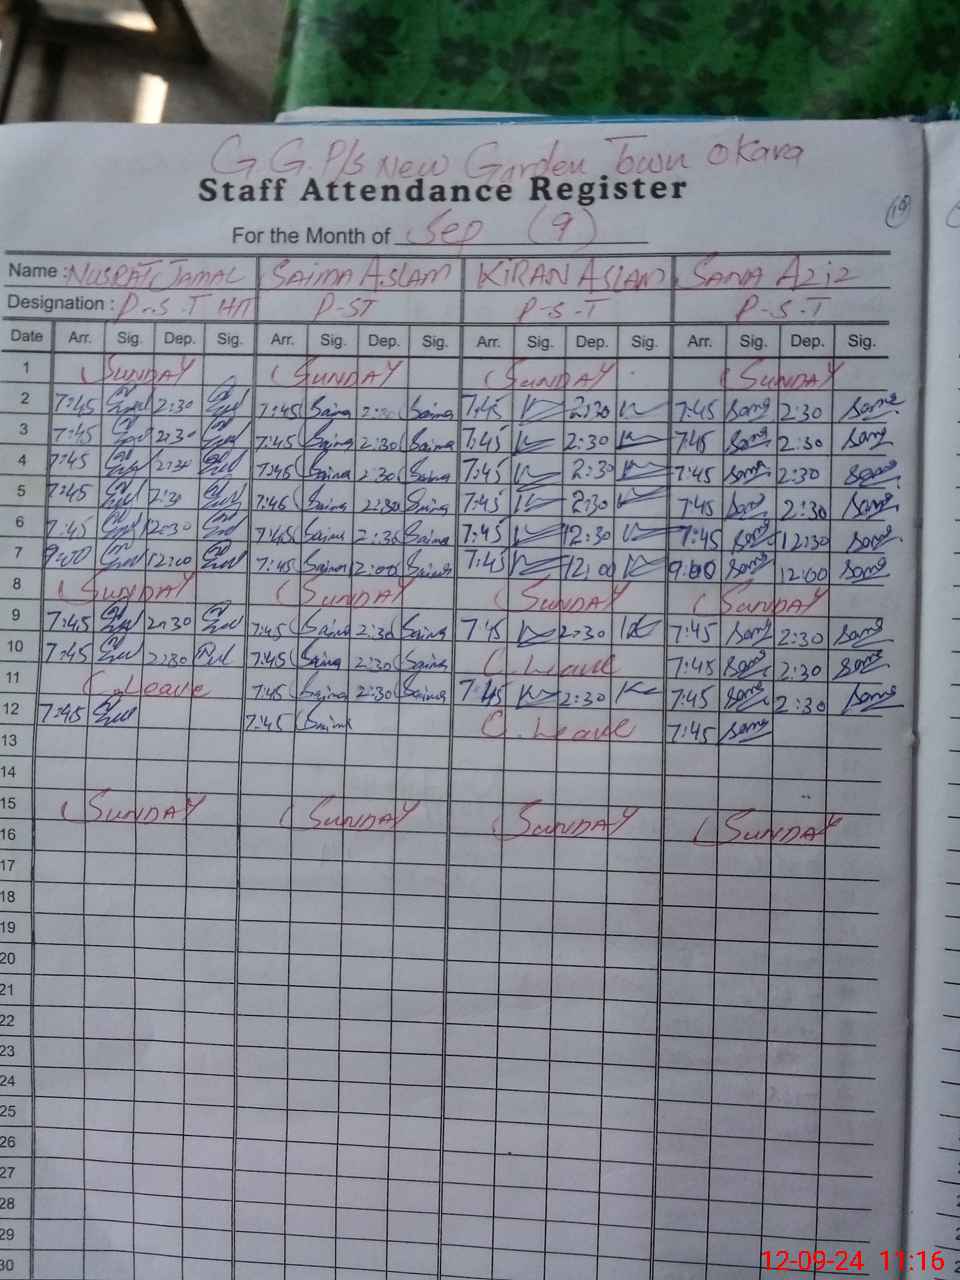 G.G.P/s New Garden Town Okara
Staff Attendance Register
(19)
For the Month of Sep (9)
Name : NUSRAT JAMAL SAIMA ASLAM KIRAN ASLAM SANA AZIZ
Designation : P-S.T HT P-ST P-S.T P-S.T
Date Arr. Sig. Dep. Sig. Arr. Sig. Dep. Sig. Arr. Sig. Dep. Sig. Arr. Sig. Dep. Sig.
1 SUNDAY SUNDAY SUNDAY SUNDAY
2 7:45 2:30 7:45 Saima 2:30 Saima 7:45 2:30 7:45 Sana 2:30 Sana
3 7:45 2:30 7:45 Saima 2:30 Saima 7:45 2:30 7:45 Sana 2:30 Sana
4 7:45 2:30 7:45 Saima 2:30 Saima 7:45 2:30 7:45 Sana 2:30 Sana
5 7:45 2:30 7:45 Saima 2:30 Saima 7:45 2:30 7:45 Sana 2:30 Sana
6 7:45 12:30 7:45 Saima 2:30 Saima 7:45 12:30 7:45 Sana 12:30 Sana
7 9:00 12:00 7:45 Saima 2:00 Saima 7:45 12:00 9:00 Sana 12:00 Sana
8 SUNDAY SUNDAY SUNDAY SUNDAY
9 7:45 2:30 7:45 Saima 2:30 Saima 7:45 2:30 7:45 Sana 2:30 Sana
10 7:45 2:30 7:45 Saima 2:30 Saima C.Leave 7:45 Sana 2:30 Sana
11 C.Leave 7:45 Saima 2:30 Saima 7:45 2:30 7:45 Sana 2:30 Sana
12 7:45 7:45 Saima C.Leave 7:45 Sana
13
14
15 SUNDAY SUNDAY SUNDAY SUNDAY
16
17
18
19
20
21
22
23
24
25
26
27
28
29
30
12-09-24 11:16